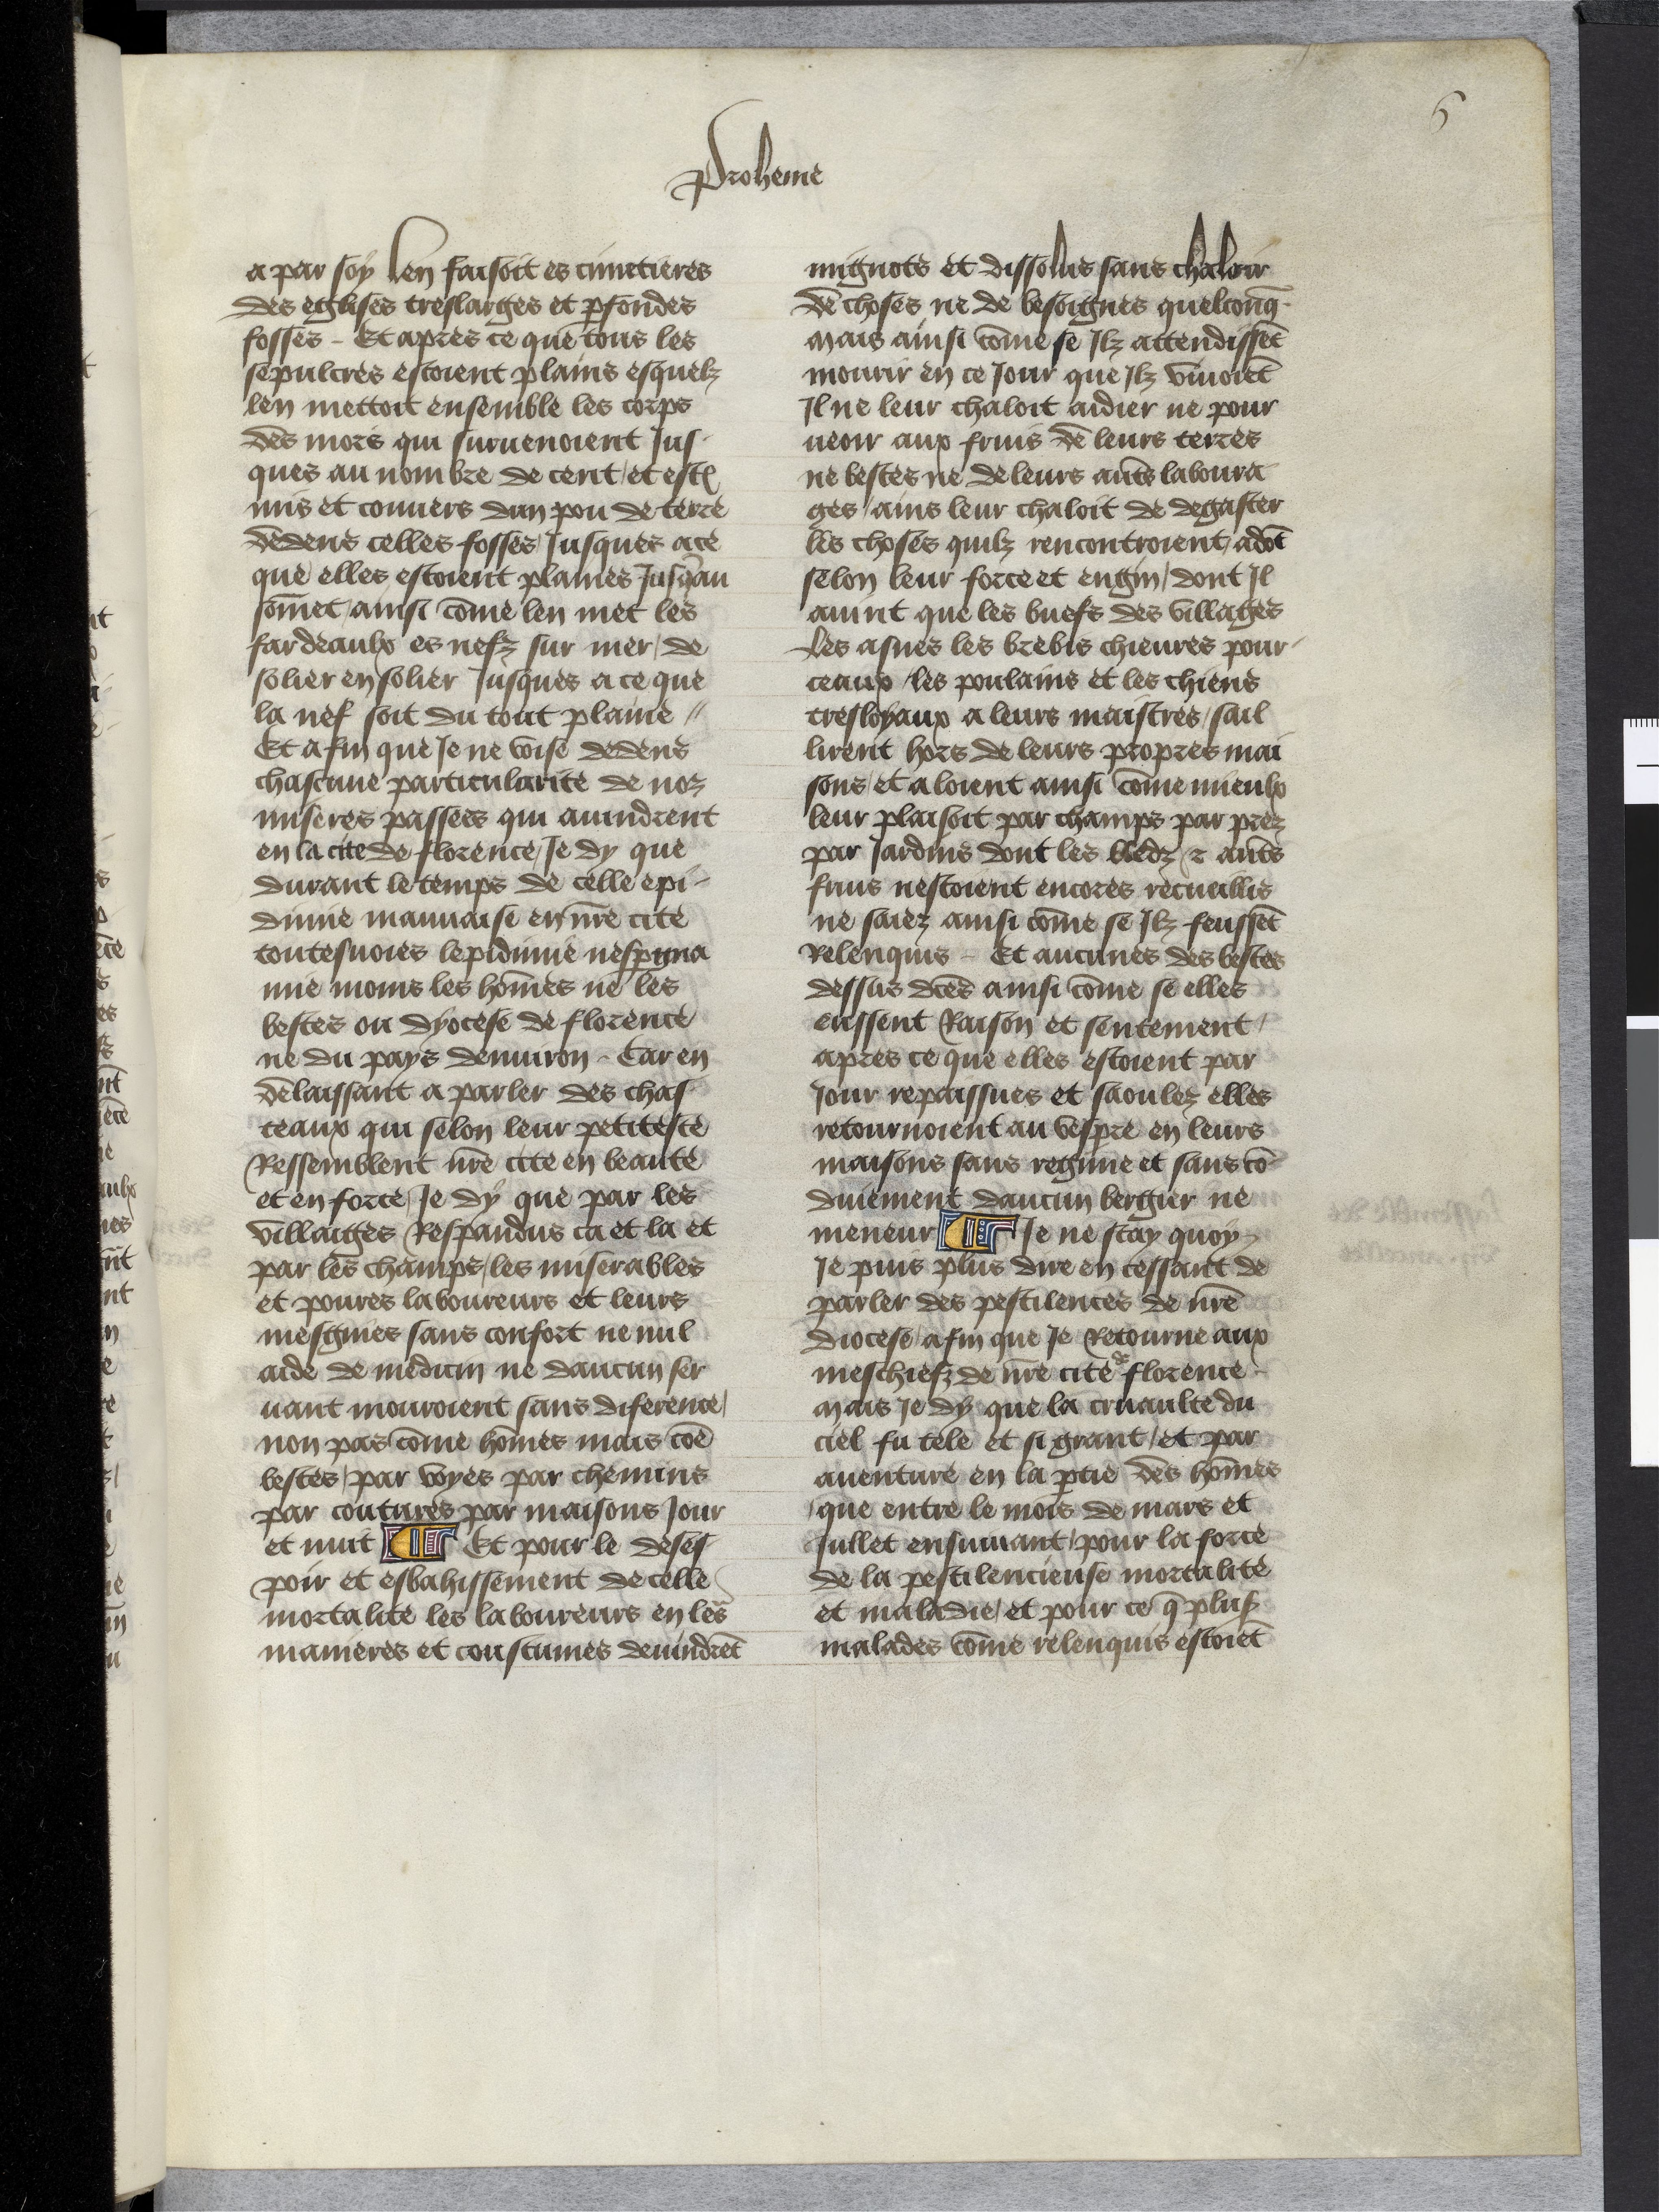 6
Proheme
a par soy len faisoit es cimetieres
des eglises treslarges et pfondes
fosses - Et apres ce que tous les
sepulcres estoient plains esquelz
len mettoit ensemble les corps
des mors qui suruenoient Jus-
ques au nombre de cent / et est
mis et couuers dun pou de terre
dedens celles fosses / Jusques a ce
que elles estoient plaines Jusqau
som̄et / ainsi com̄e len met les
fardeaulx es nefz sur mer / de
solier en solier Jusques a ce que
la nef soit du tout plaine //
Et afin que Je ne voise dedens
chascune particularite de noz
miseres passees qui auindrent
en la cite de florence / Je dy que
durant le temps de celle epi-
dimie mauuaise en nr̄e cite
toutesuoies lepidimie nespgna
mie moins les hom̄es ne les
bestes ou dyocese de florence
ne du pays denuiron - Car en
delaissant a parler des chas
teaux qui selon leur petitesce
Ressemblent nr̄e cite en beaute
et en force / Je dy que par les
villaiges Respandus ca et la et
par les champs / les miserables
et poures laboureurs et leurs
mesgnies sans confort ne nul
aide de medicin ne daucun ser
uant mouroient sans diference /
non pas com̄e hom̄es mais cōe
bestes / par voyes par chemins
par coutures par maisons Jour
et nuit ¶ Et pour le deses-
poir et esbahissement de celle
mortalite les laboureurs en leᷣs
manieres et coustumes deuindrēt
mignots et dissolus sans chaloir
de choses ne de besoignes quelconq̄-
mais ainsi com̄e se Jlz attendissēt
mourir en ce Jour que Jlz viuoiēt
Jl ne leur chaloit aidier ne pour
ueoir aux fruis de leurs terres
ne bestes ne de leurs aut̄s laboura
ges / ains leur chaloit de degaster
les choses quilz rencontroient / adōt
selon leur force et engin / dont Jl
auint que les buefs des villages
les asnes les brebis chieures pour-
ceaux / les poulains et les chiens
tresloyaux a leurs maistres / sail
lirent hors de leurs propres mai
sons / et aloient ainsi com̄e mieulx
leur plaisoit par champs par prez
par Jardins dont les bledz ⁊ aut̄s
fruis nestoient encores recueillis
ne saiez ainsi com̄e se Jlz feussēt
Relenquis - Et aucunes des bestes
dessus dc̄es ainsi com̄e se elles
eussent Raison et sentement /
apres ce que elles estoient par
Jour repaissues et saoulez elles
retournoient au vespre en leurs
maisons sans regime et sans cō-
duiement daucun bergier ne
meneur ¶ Je ne scay quoy
Je puis plus dire en cessant de
parler des pestilences de nr̄e
diocese / afin que Je Retourne aux
meschiefz de nr̄e cite de florence -
mais Je dy que la cruaulte du
ciel fu tele et si grant / et par
auenture en la ptie des hom̄es
que entre le mois de mars et
Jullet ensuiuant / pour la force
de la pestilencieuse mortalite
et maladie / et pour ce q̄ plus
malades com̄e relenquis estoiēt